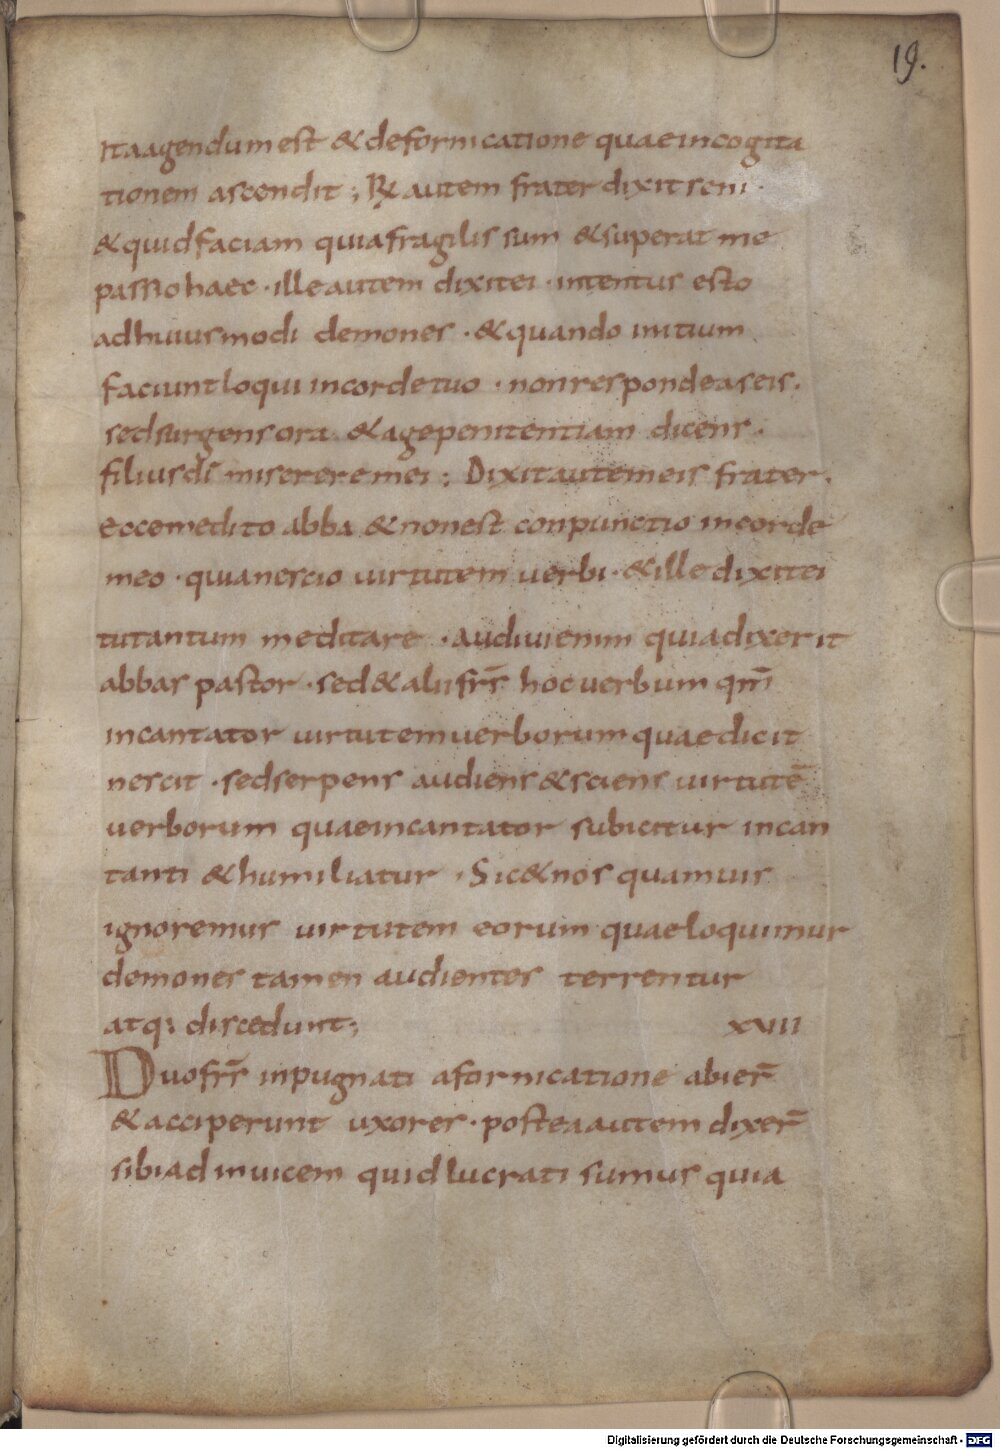 19.
Ita agendum est & defornicatione quae incogita
tionem ascendit ; R& autem frater dixit seni ·
& quid faciam quia fragilis sum & superat me
passio haec · ille autem dixit ei · intentus esto
ad huiusmodi demones · & quando initium
faciunt loqui in corde tuo · non respondeas eis .
sed surgens ora & age penitentiam dicens .
filius dī miserere mei ; Dixit autem eis frater .
ecce medito abba & non est conpunctio in corde
meo · quia nescio uirtutem uerbi · & ille dixit ei
tu tantum meditare · audiui enim quia dixerit
abbas pastor · sed & alii frs̄ hoc uerbum qm̄
incantator uirtutem uerborum quae dicit
nescit · sed serpens audiens & sciens uirtutē
uerborum quae incantator subicitur incan
tanti & humiliatur · Sic & nos quamuis
ignoremus uirtutem eorum quae loquimur
demones tamen audientes terrentur
atq; discedunt; xviii
Duo frs̄ inpugnati a fornicatione abier̄
& acciperunt uxores · postea autem dixer̄
sibi ad inuicem quid lucrati sumus quia
Digitalisierung gefördert durch die Deutsche Forschungsgemeinschaft - DFG